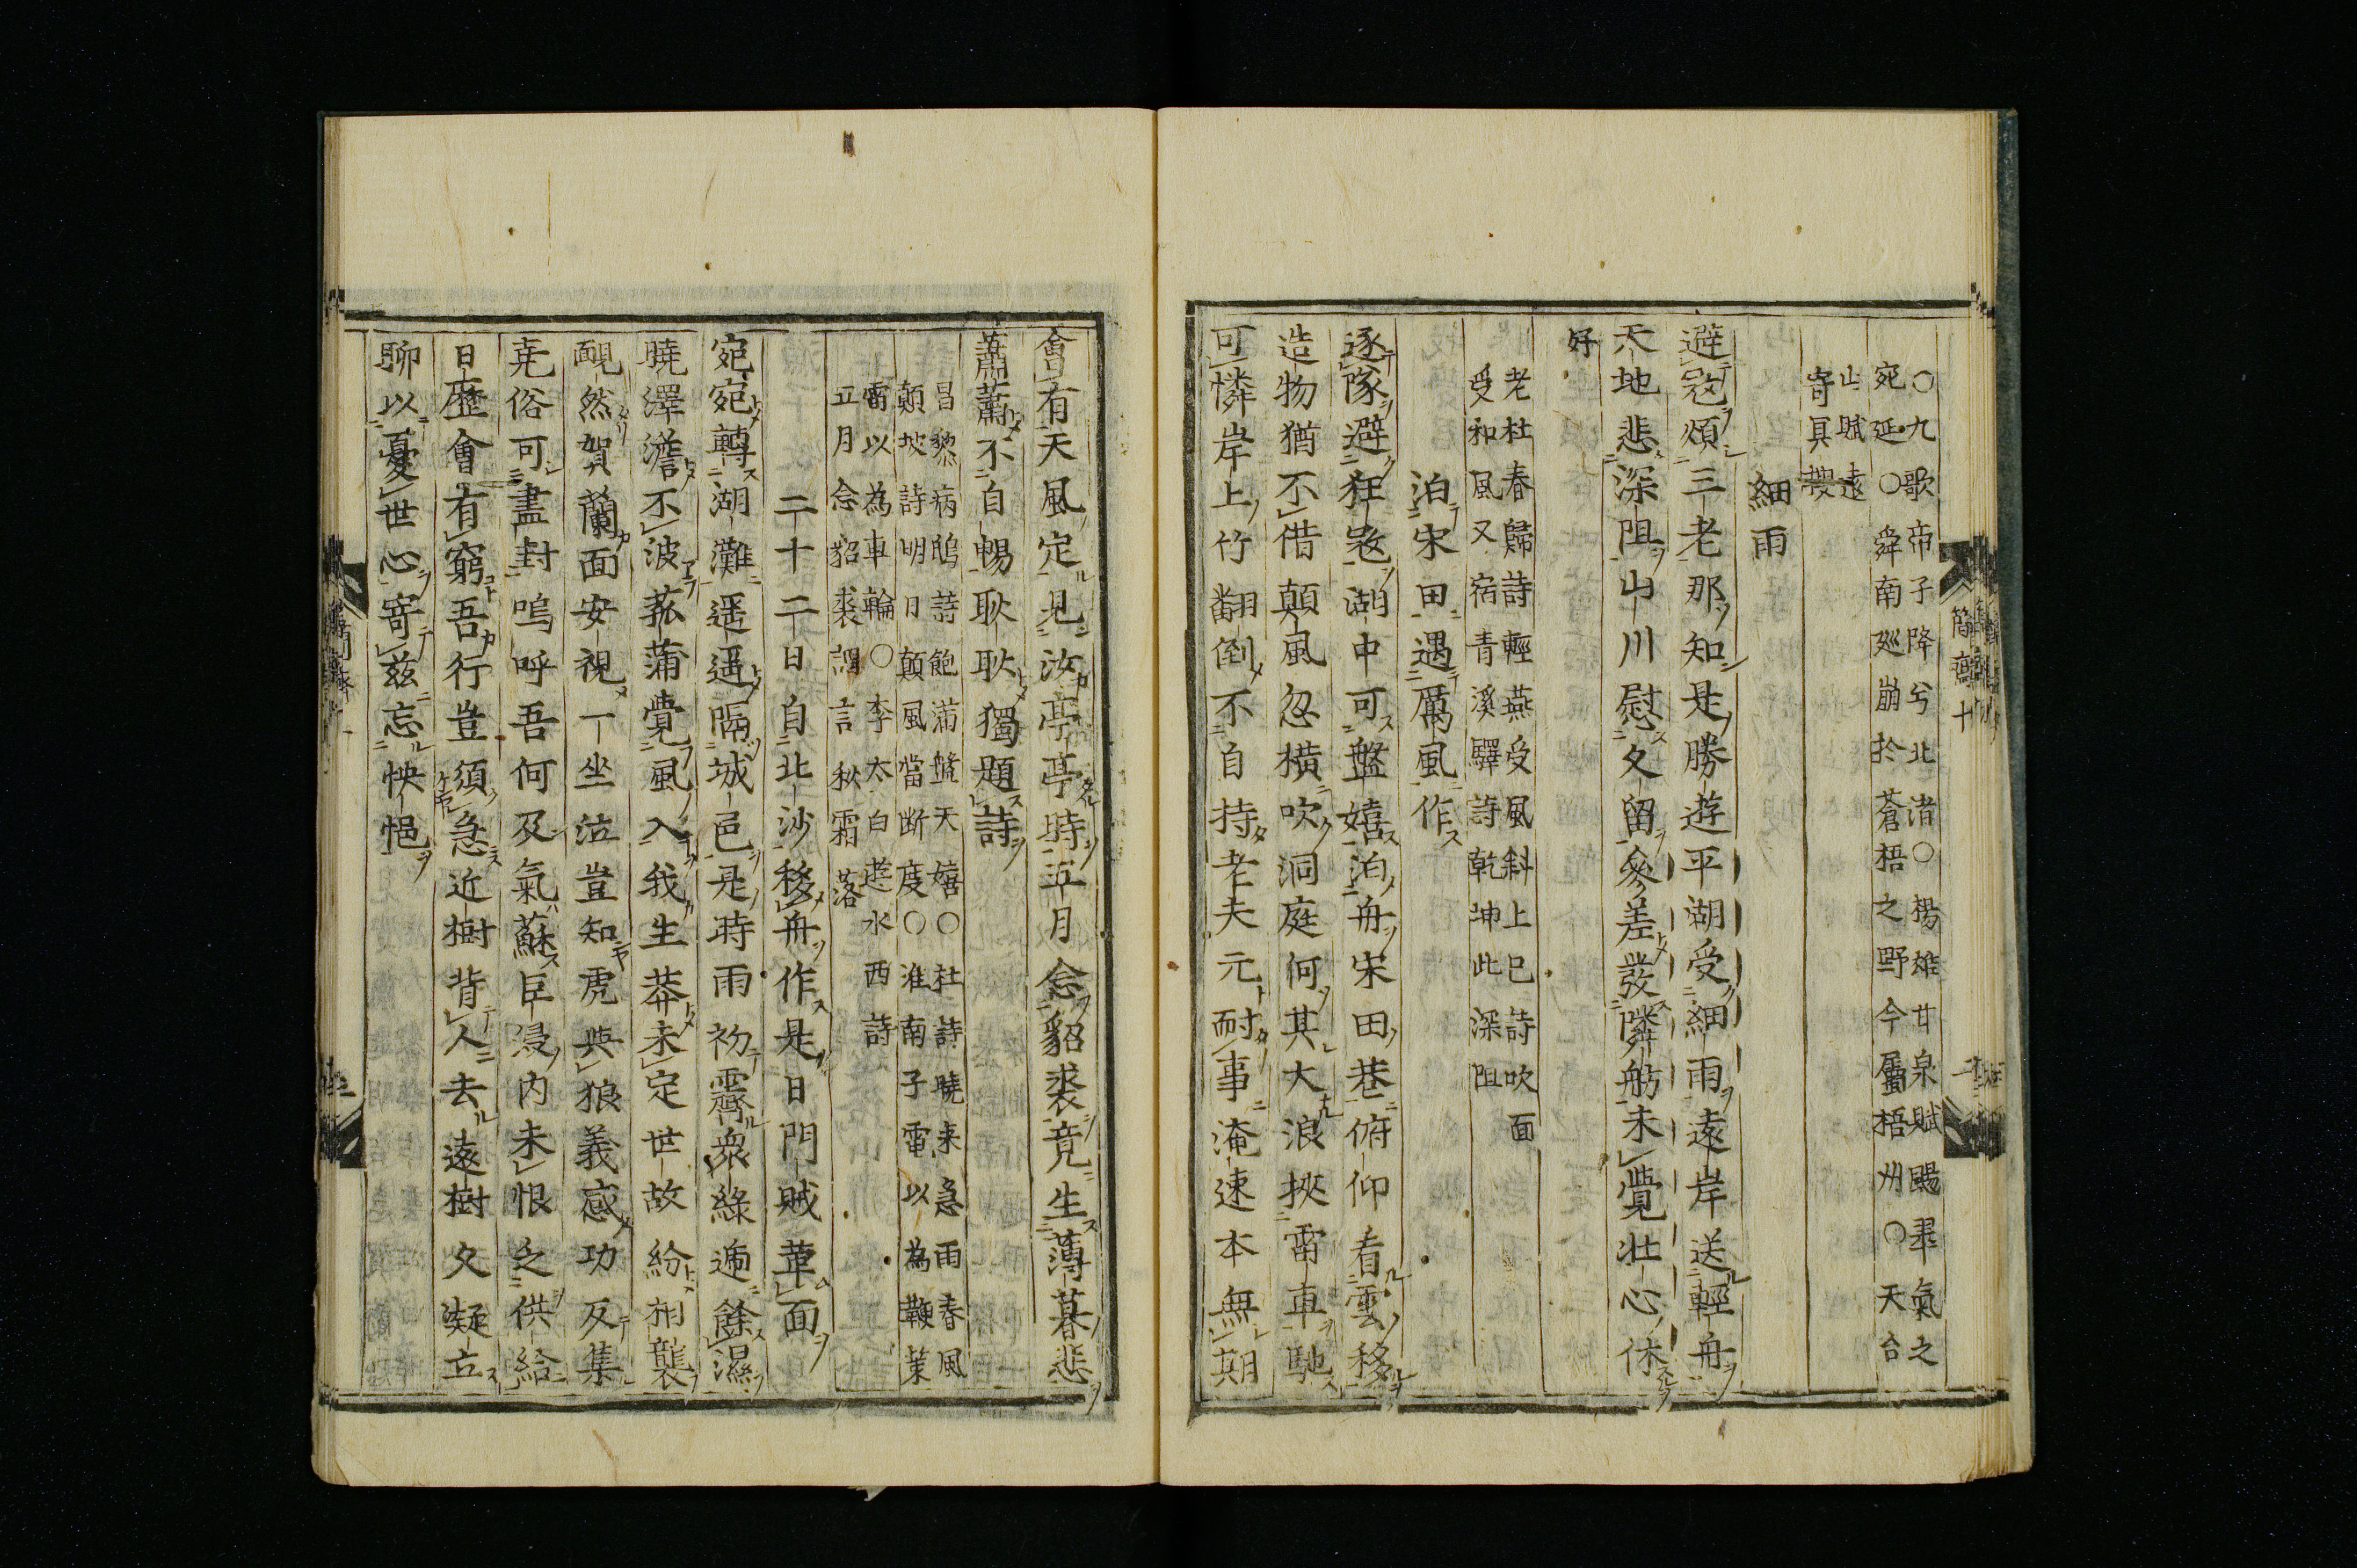 ○九歌帝子降兮北渚○楊雄甘泉賦颺翠氣之
宛延○舜南巡崩於蒼梧之野今屬梧州○天台
山賦遠
寄冥搜
細雨
避寇煩三老那知是勝遊平湖受細雨遠岸送輕舟
天地悲深阻山川慰久留參差發隣舫未覺壯心休
好
老杜春歸詩輕燕受風斜上巳詩吹面
受和風又宿青溪驛詩乾坤此深阻
泊宋田遇厲風作
逐隊避狂寇湖中可盤嬉泊舟宋田巷俯仰看雲移
造物猶不借顛風忽橫吹洞庭何其大浪挾雷車馳
可憐岸上竹翻倒不自持老夫元耐事淹速本無期
會有天風定見汝亭亭時五月念貂裘竟生薄暮悲
蕭蕭不自暢耿耿獨題詩
昌黎病鴟詩飽滿盤天嬉○杜詩曉来急雨春風
顛坡詩明日顛風當斷度○淮南子電以為鞭策
雷以為車輪○李太白遊水西詩
五月念貂裘謂言秋霜落
二十二日自北沙移舟作是日聞賊革面
宛宛轉湖灘遥遥隔城邑是時雨初霽衆綠遍餘濕
曉澤澹不波菰蒲覺風入我生莽未定世故紛相襲
靦然賀蘭面安視一坐泣豈知虎與狼義感功反集
堯俗可盡封嗚呼吾何及氣蘇巨浸内未恨乏供給
日曆會有窮吾行豈須急近樹背人去遠樹久凝立
聊以憂世心寄兹忘怏悒